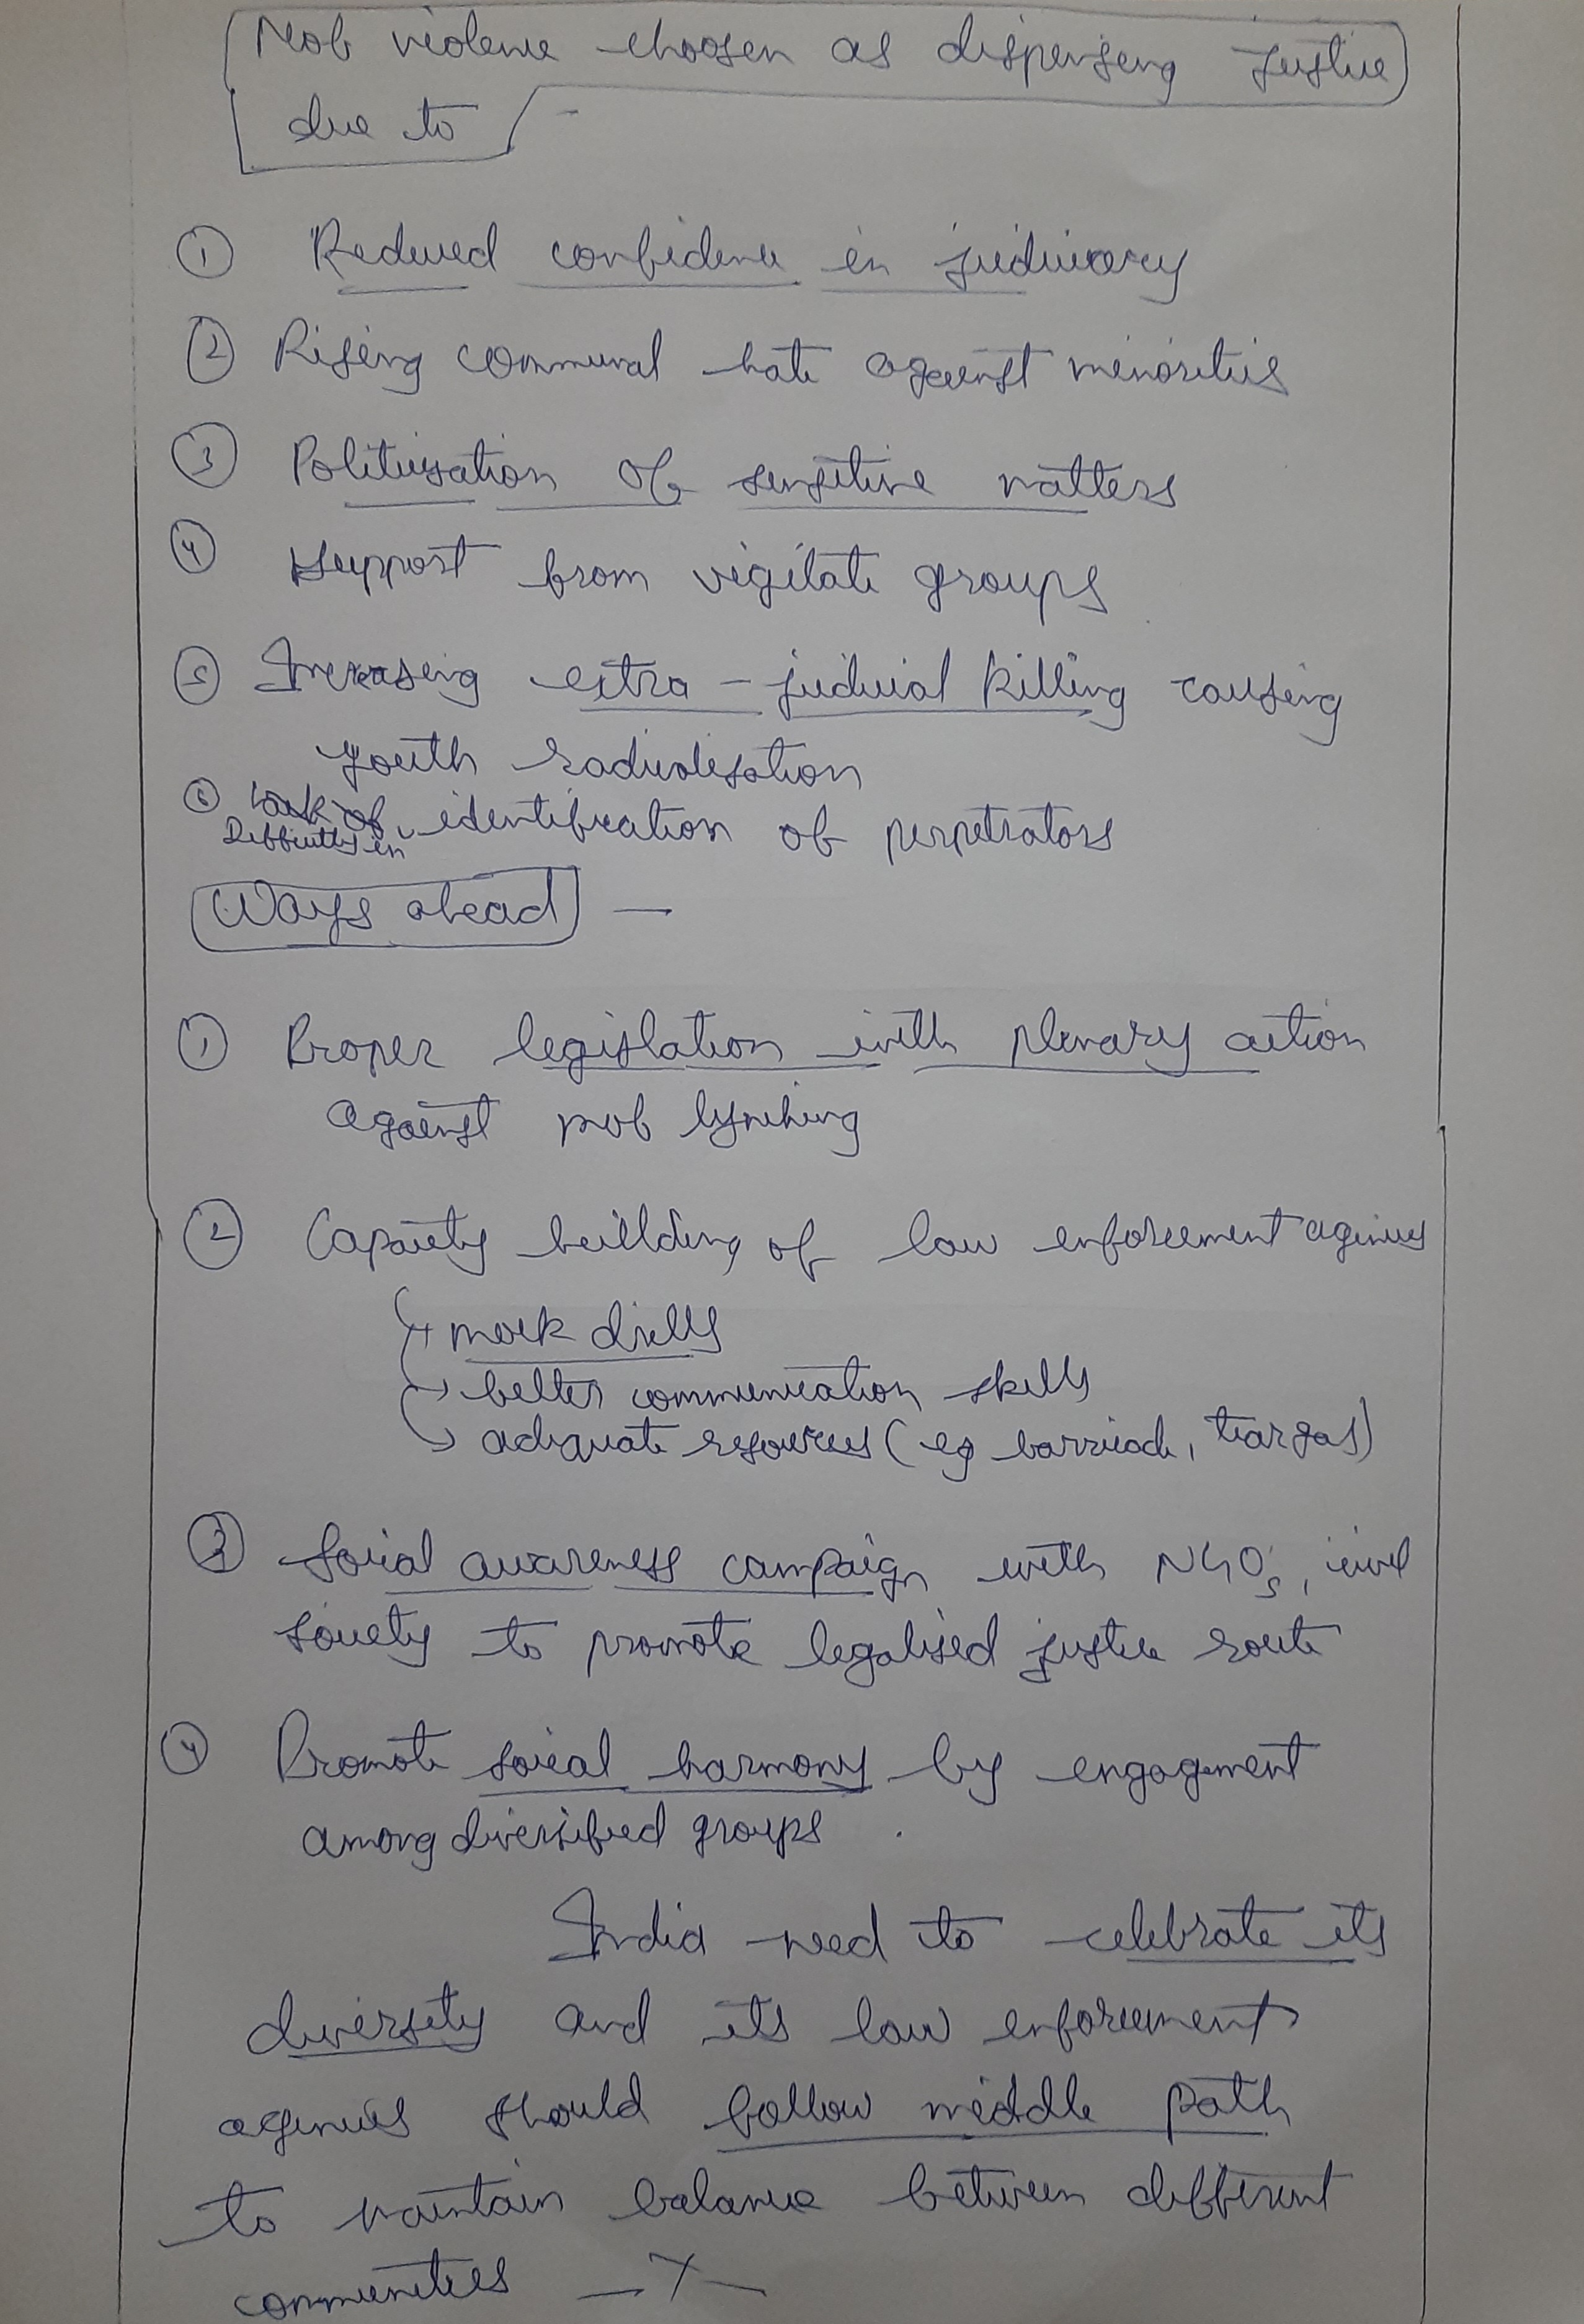 Mob violence choosen as dispensing justice
due to -
① Reduced confidence in judiciary
② Rising communal hate against minorities
③ Politicisation of sensitive matters
④ Support from vigilate groups
⑤ Increasing extra - judicial killing causing
youth radicalisation
⑥ Difficulty in identification of perpetrators
Ways ahead —
① Proper legislation with plenary action
against mob lynching
② Capacity building of law enforcement agencies
→ mock drills
→ better communication skills
→ adequate resources (eg barricade, tear gas)
③ Social awareness campaign with NGO's, civil
society to promote legalised justice route
④ Promote social harmony by engagement
among diversified groups .
India need to celebrate its
diversity and its law enforcement
agencies should follow middle path
to maintain balance between different
communities —x—